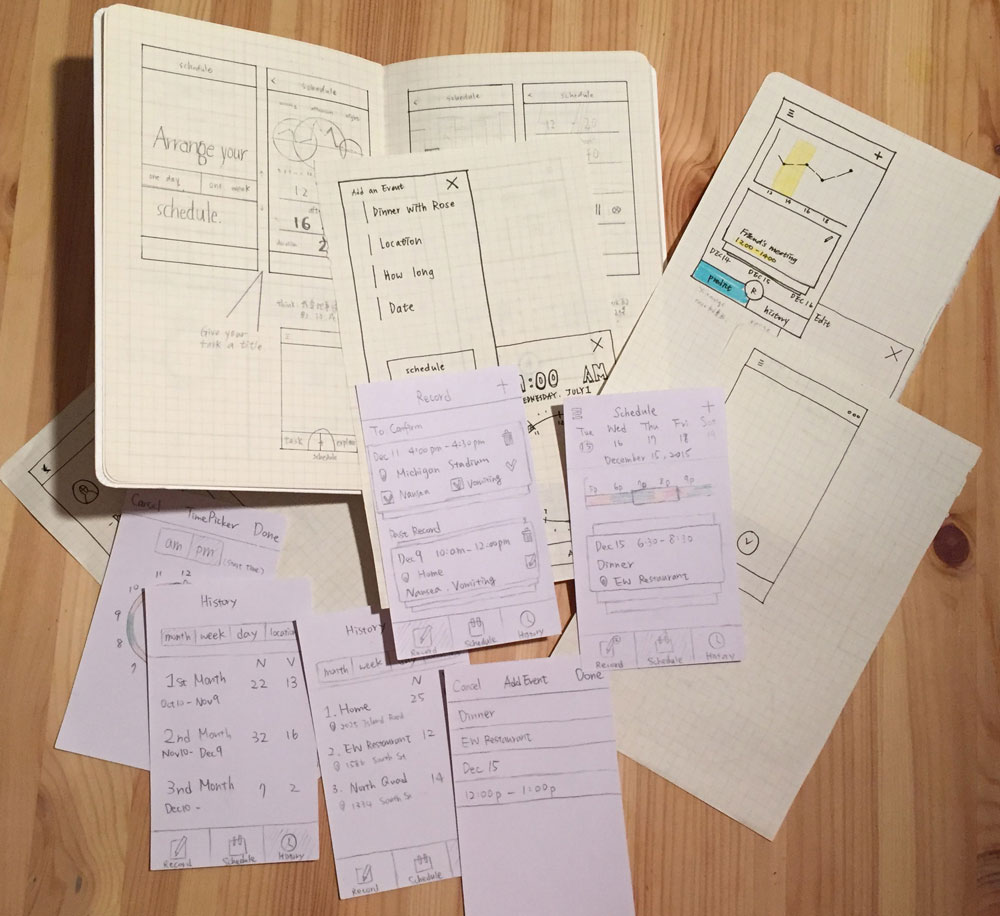 schedule
Arrange your
one day
one week
schedule.
<
schedule
12
16
2
Give your
task a title
task
schedule
<
schedule
schedule
12 - 20
Add an Event
X
Dinner with Rose
Location
How long
Date
schedule
X
:00 AM
WEDNESDAY, JULY 1
+
12 14 16 18
Friend's meeting
12:00 - 14:00
DEC 14
DEC 15
DEC 16
predict
R
history
Edit
X
Record
+
To Confirm
Dec 11 4:00 pm - 4:30 pm
Michigan Stadium
Nausea
Vomiting
Past Record
Dec 9 10:am - 12:00pm
Home
Nausea . Vomiting
Record
Schedule
History
Schedule
+
Tue Wed Thu Fri Sat
15 16 17 18 19
December 15, 2015
5p 6p 7p 8p 9p
Dec 15 6:30 - 8:30
Dinner
EW Restaurant
Record
Schedule
History
Cancel
TimePicker
Done
am
pm
(Start Time)
10 11 12
9
8
7
History
month
week
day
location
N V
1st Month 22 13
Oct 10 - Nov 9
2nd Month 32 16
Nov 10 - Dec 9
3nd Month 7 2
Dec 10 -
Record
Schedule
History
History
month
week
N
1. Home 25
2. EW Restaurant 12
3. North Quad 14
Record
Schedule
Cancel
Add Event
Done
Dinner
EW Restaurant
Dec 15
12:00p - 1:00p